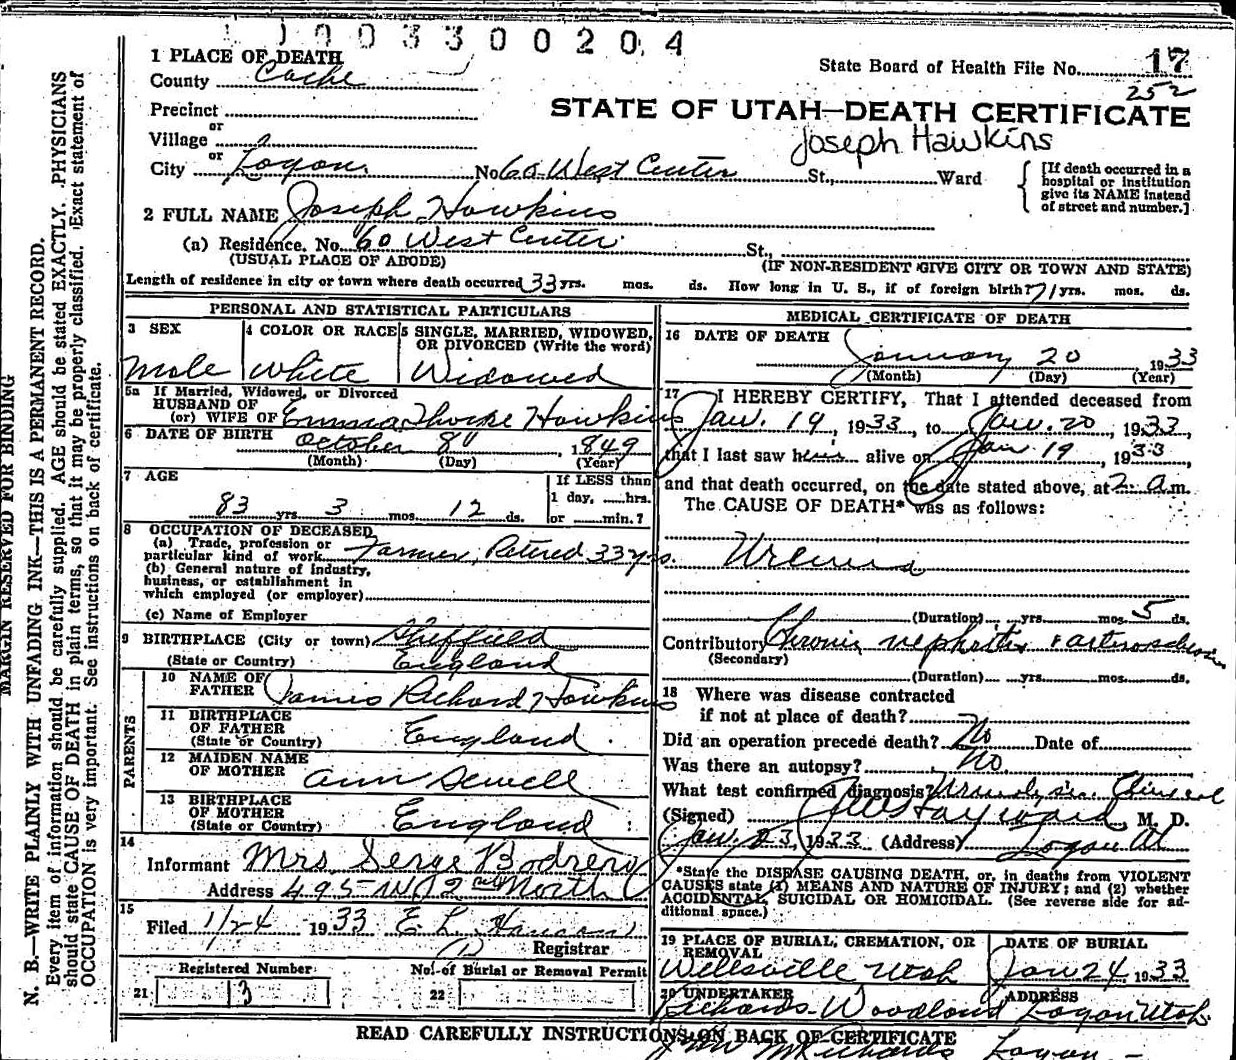 1003300204
1 PLACE OF DEATH
County Cache
State Board of Health File No. 17
252
Precinct
STATE OF UTAH—DEATH CERTIFICATE
or
Village
Joseph Hawkins
or
City Logan No. 60 West Center St., Ward
[If death occurred in a
hospital or institution
give its NAME instead
of street and number.]
2 FULL NAME Joseph Hawkins
(a) Residence. No. 60 West Center St.,
(USUAL PLACE OF ABODE) (IF NON-RESIDENT GIVE CITY OR TOWN AND STATE)
Length of residence in city or town where death occurred 33 yrs. mos. ds. How long in U. S., if of foreign birth? 71 yrs. mos. ds.
PERSONAL AND STATISTICAL PARTICULARS
3 SEX 4 COLOR OR RACE 5 SINGLE, MARRIED, WIDOWED,
OR DIVORCED (Write the word)
Male White Widowed
5a If Married, Widowed, or Divorced
HUSBAND OF
(or) WIFE OF Emma Thorpe Hawkins
6 DATE OF BIRTH October 8" , 1849
(Month) (Day) (Year)
7 AGE If LESS than
1 day, hrs.
83 yrs. 3 mos. 12 ds. or min.?
8 OCCUPATION OF DECEASED
(a) Trade, profession or
particular kind of work Farmer, Retired 33 yrs.
(b) General nature of industry,
business, or establishment in
which employed (or employer)
(c) Name of Employer
9 BIRTHPLACE (City or town) Sheffield
(State or Country) England
PARENTS
10 NAME OF
FATHER James Richard Hawkins
11 BIRTHPLACE
OF FATHER
(State or Country) England
12 MAIDEN NAME
OF MOTHER Ann Sewell
13 BIRTHPLACE
OF MOTHER
(State or Country) England
14
Informant Mrs Serge Bodrero
Address 495 W 2nd North
15
Filed 1/24 1933 E. L. Hanson
Registrar
Registered Number No. of Burial or Removal Permit
21 3 22
MEDICAL CERTIFICATE OF DEATH
16 DATE OF DEATH
January 20 1933
(Month) (Day) (Year)
17 I HEREBY CERTIFY, That I attended deceased from
Jan. 19, 1933, to Jan. 20, 1933,
that I last saw him alive on Jan 19, 1933,
and that death occurred, on the date stated above, at 2 a.m.
The CAUSE OF DEATH* was as follows:
Uremia
(Duration) yrs. mos. 5 ds.
Contributory Chronic nephritis + arteriosclerosis
(Secondary)
(Duration) yrs. mos. ds.
18 Where was disease contracted
if not at place of death?
Did an operation precede death? No Date of
Was there an autopsy? No.
What test confirmed diagnosis? Urinalysis. Clinical
(Signed) J W Hayward, M. D.
Jan. 23, 1933 (Address) Logan Ut
*State the DISEASE CAUSING DEATH, or, in deaths from VIOLENT
CAUSES state (1) MEANS AND NATURE OF INJURY; and (2) whether
ACCIDENTAL, SUICIDAL OR HOMICIDAL. (See reverse side for ad-
ditional space.)
19 PLACE OF BURIAL, CREMATION, OR
REMOVAL
DATE OF BURIAL
Wellsville Utah Jan 24, 1933
20 UNDERTAKER ADDRESS
Richards-Woodland Logan Utah
READ CAREFULLY INSTRUCTIONS ON BACK OF CERTIFICATE
Richards Logan
MARGIN RESERVED FOR BINDING
N. B.—WRITE PLAINLY WITH UNFADING INK—THIS IS A PERMANENT RECORD.
Every item of information should be carefully supplied. AGE should be stated EXACTLY. PHYSICIANS
should state CAUSE OF DEATH in plain terms, so that it may be properly classified. Exact statement of
OCCUPATION is very important. See instructions on back of certificate.